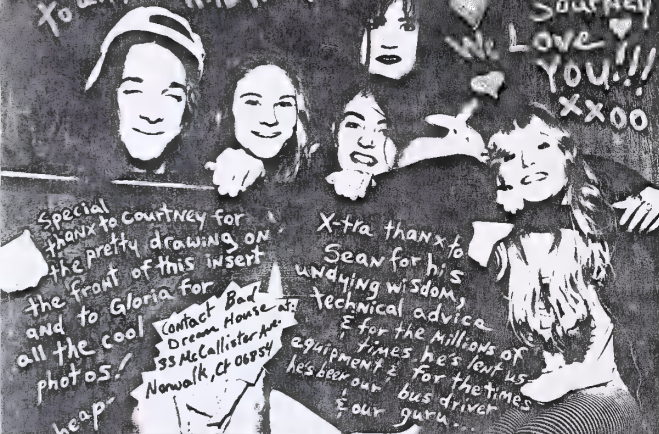 Journey
We Love
YOU!!!
xxoo
Special
thanx to Courtney for
the pretty drawing on
the front of this insert
and to Gloria for
all the cool
photos!
Contact Bad
Dream House at:
33 McCallister Ave.
Norwalk, Ct 06854
X-tra thanx to
Sean for his
undying wisdom,
technical advice
& for the millions of
times, he's lent us
equipment & for the times
he's been our bus driver
& our guru...
heap-